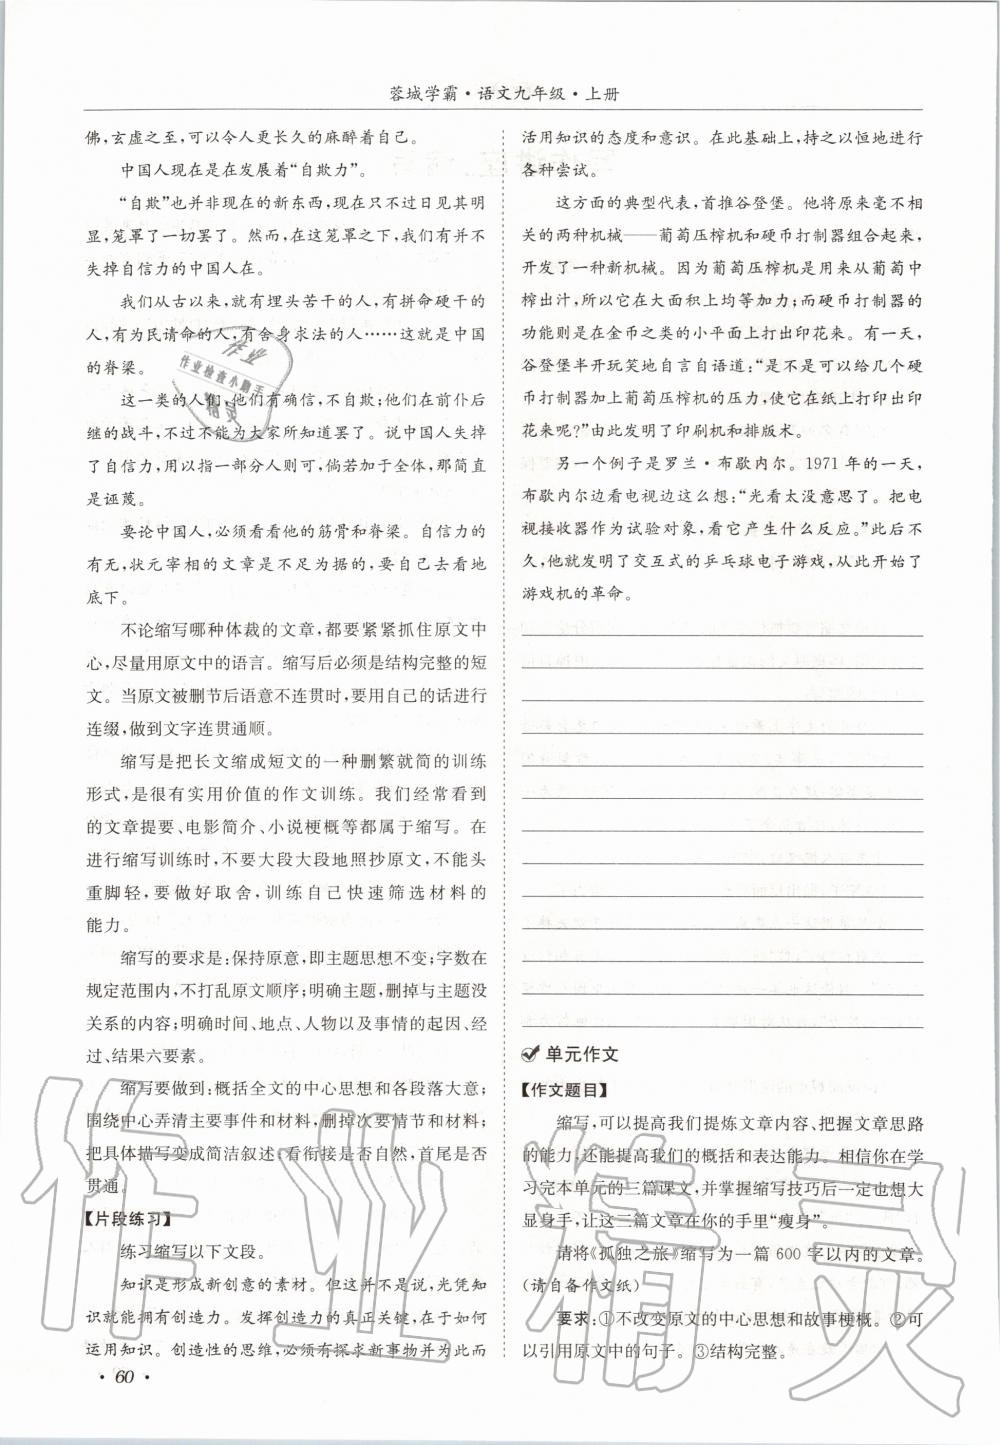 蓉城学霸·语文九年级·上册
佛,玄虚之至,可以令人更长久的麻醉着自己。
中国人现在是在发展着“自欺力”。
“自欺”也并非现在的新东西,现在只不过日见其明
显,笼罩了一切罢了。然而,在这笼罩之下,我们有并不
失掉自信力的中国人在。
我们从古以来,就有埋头苦干的人,有拼命硬干的
人,有为民请命的人,有舍身求法的人……这就是中国
的脊梁。
这一类的人们,他们有确信,不自欺;他们在前仆后
继的战斗,不过不能为大家所知道罢了。说中国人失掉
了自信力,用以指一部分人则可,倘若加于全体,那简直
是诬蔑。
要论中国人,必须看看他的筋骨和脊梁。自信力的
有无,状元宰相的文章是不足为据的,要自己去看地
底下。
不论缩写哪种体裁的文章,都要紧紧抓住原文中
心,尽量用原文中的语言。缩写后必须是结构完整的短
文。当原文被删节后语意不连贯时,要用自己的话进行
连缀,做到文字连贯通顺。
缩写是把长文缩成短文的一种删繁就简的训练
形式,是很有实用价值的作文训练。我们经常看到
的文章提要、电影简介、小说梗概等都属于缩写。在
进行缩写训练时,不要大段大段地照抄原文,不能头
重脚轻,要做好取舍,训练自己快速筛选材料的
能力。
缩写的要求是:保持原意,即主题思想不变;字数在
规定范围内,不打乱原文顺序;明确主题,删掉与主题没
关系的内容;明确时间、地点、人物以及事情的起因、经
过、结果六要素。
缩写要做到:概括全文的中心思想和各段落大意;
围绕中心弄清主要事件和材料,删掉次要情节和材料;
把具体描写变成简洁叙述;看衔接是否自然,首尾是否
贯通。
【片段练习】
练习缩写以下文段。
知识是形成新创意的素材。但这并不是说,光凭知
识就能拥有创造力。发挥创造力的真正关键,在于如何
运用知识。创造性的思维,必须有探求新事物并为此而
活用知识的态度和意识。在此基础上,持之以恒地进行
各种尝试。
这方面的典型代表,首推谷登堡。他将原来毫不相
关的两种机械——葡萄压榨机和硬币打制器组合起来,
开发了一种新机械。因为葡萄压榨机是用来从葡萄中
榨出汁,所以它在大面积上均等加力;而硬币打制器的
功能则是在金币之类的小平面上打出印花来。有一天,
谷登堡半开玩笑地自言自语道:“是不是可以给几个硬
币打制器加上葡萄压榨机的压力,使它在纸上打印出印
花来呢?”由此发明了印刷机和排版术。
另一个例子是罗兰·布歇内尔。1971年的一天,
布歇内尔边看电视边这么想:“光看太没意思了。把电
视接收器作为试验对象,看它产生什么反应。”此后不
久,他就发明了交互式的乒乓球电子游戏,从此开始了
游戏机的革命。
单元作文
【作文题目】
缩写,可以提高我们提炼文章内容、把握文章思路
的能力,还能提高我们的概括和表达能力。相信你在学
习完本单元的三篇课文,并掌握缩写技巧后一定也想大
显身手,让这三篇文章在你的手里“瘦身”。
请将《孤独之旅》缩写为一篇600字以内的文章。
(请自备作文纸)
要求:①不改变原文的中心思想和故事梗概。②可
以引用原文中的句子。③结构完整。
·60·
作业
作业检查小助手
精灵
作业精灵